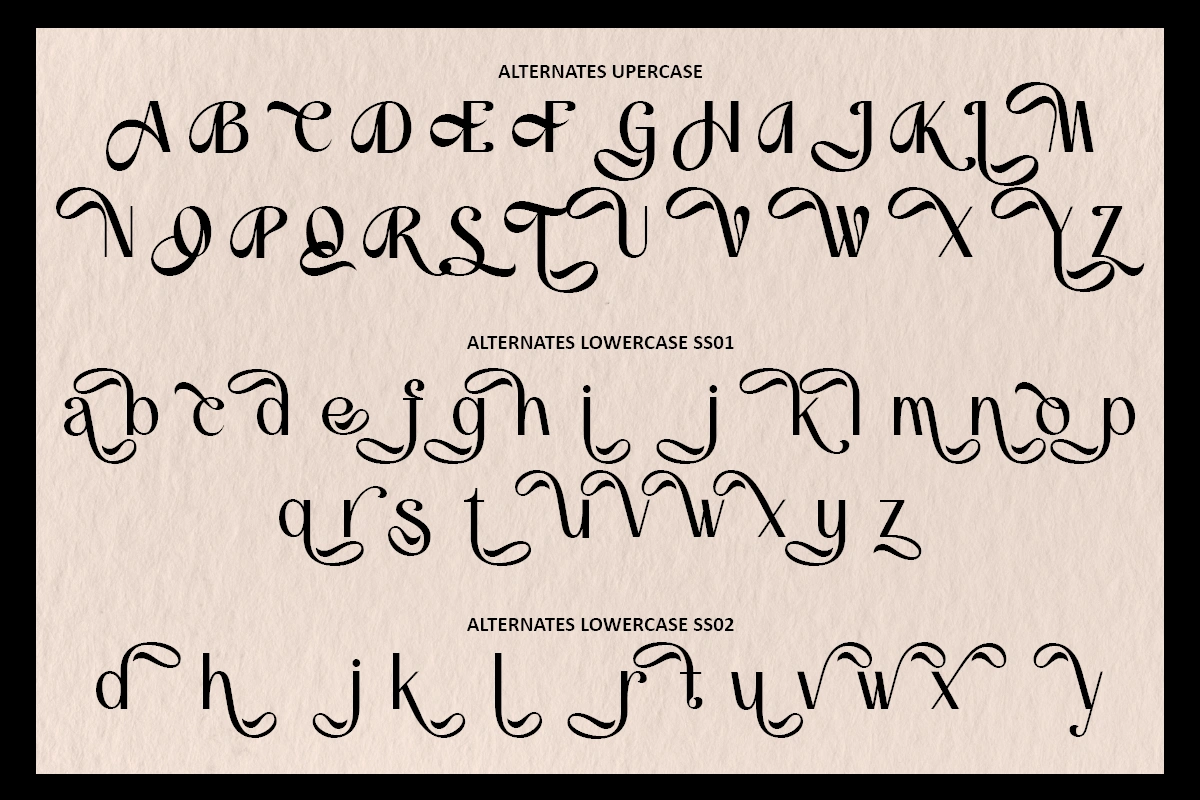 ALTERNATES UPERCASE
A B C D E F G H I J K L M
N O P Q R S T U V W X Y Z
ALTERNATES LOWERCASE SS01
a b c d e f g h i j k l m n o p
q r s t u v w x y z
ALTERNATES LOWERCASE SS02
d h j k l r t u v w x y